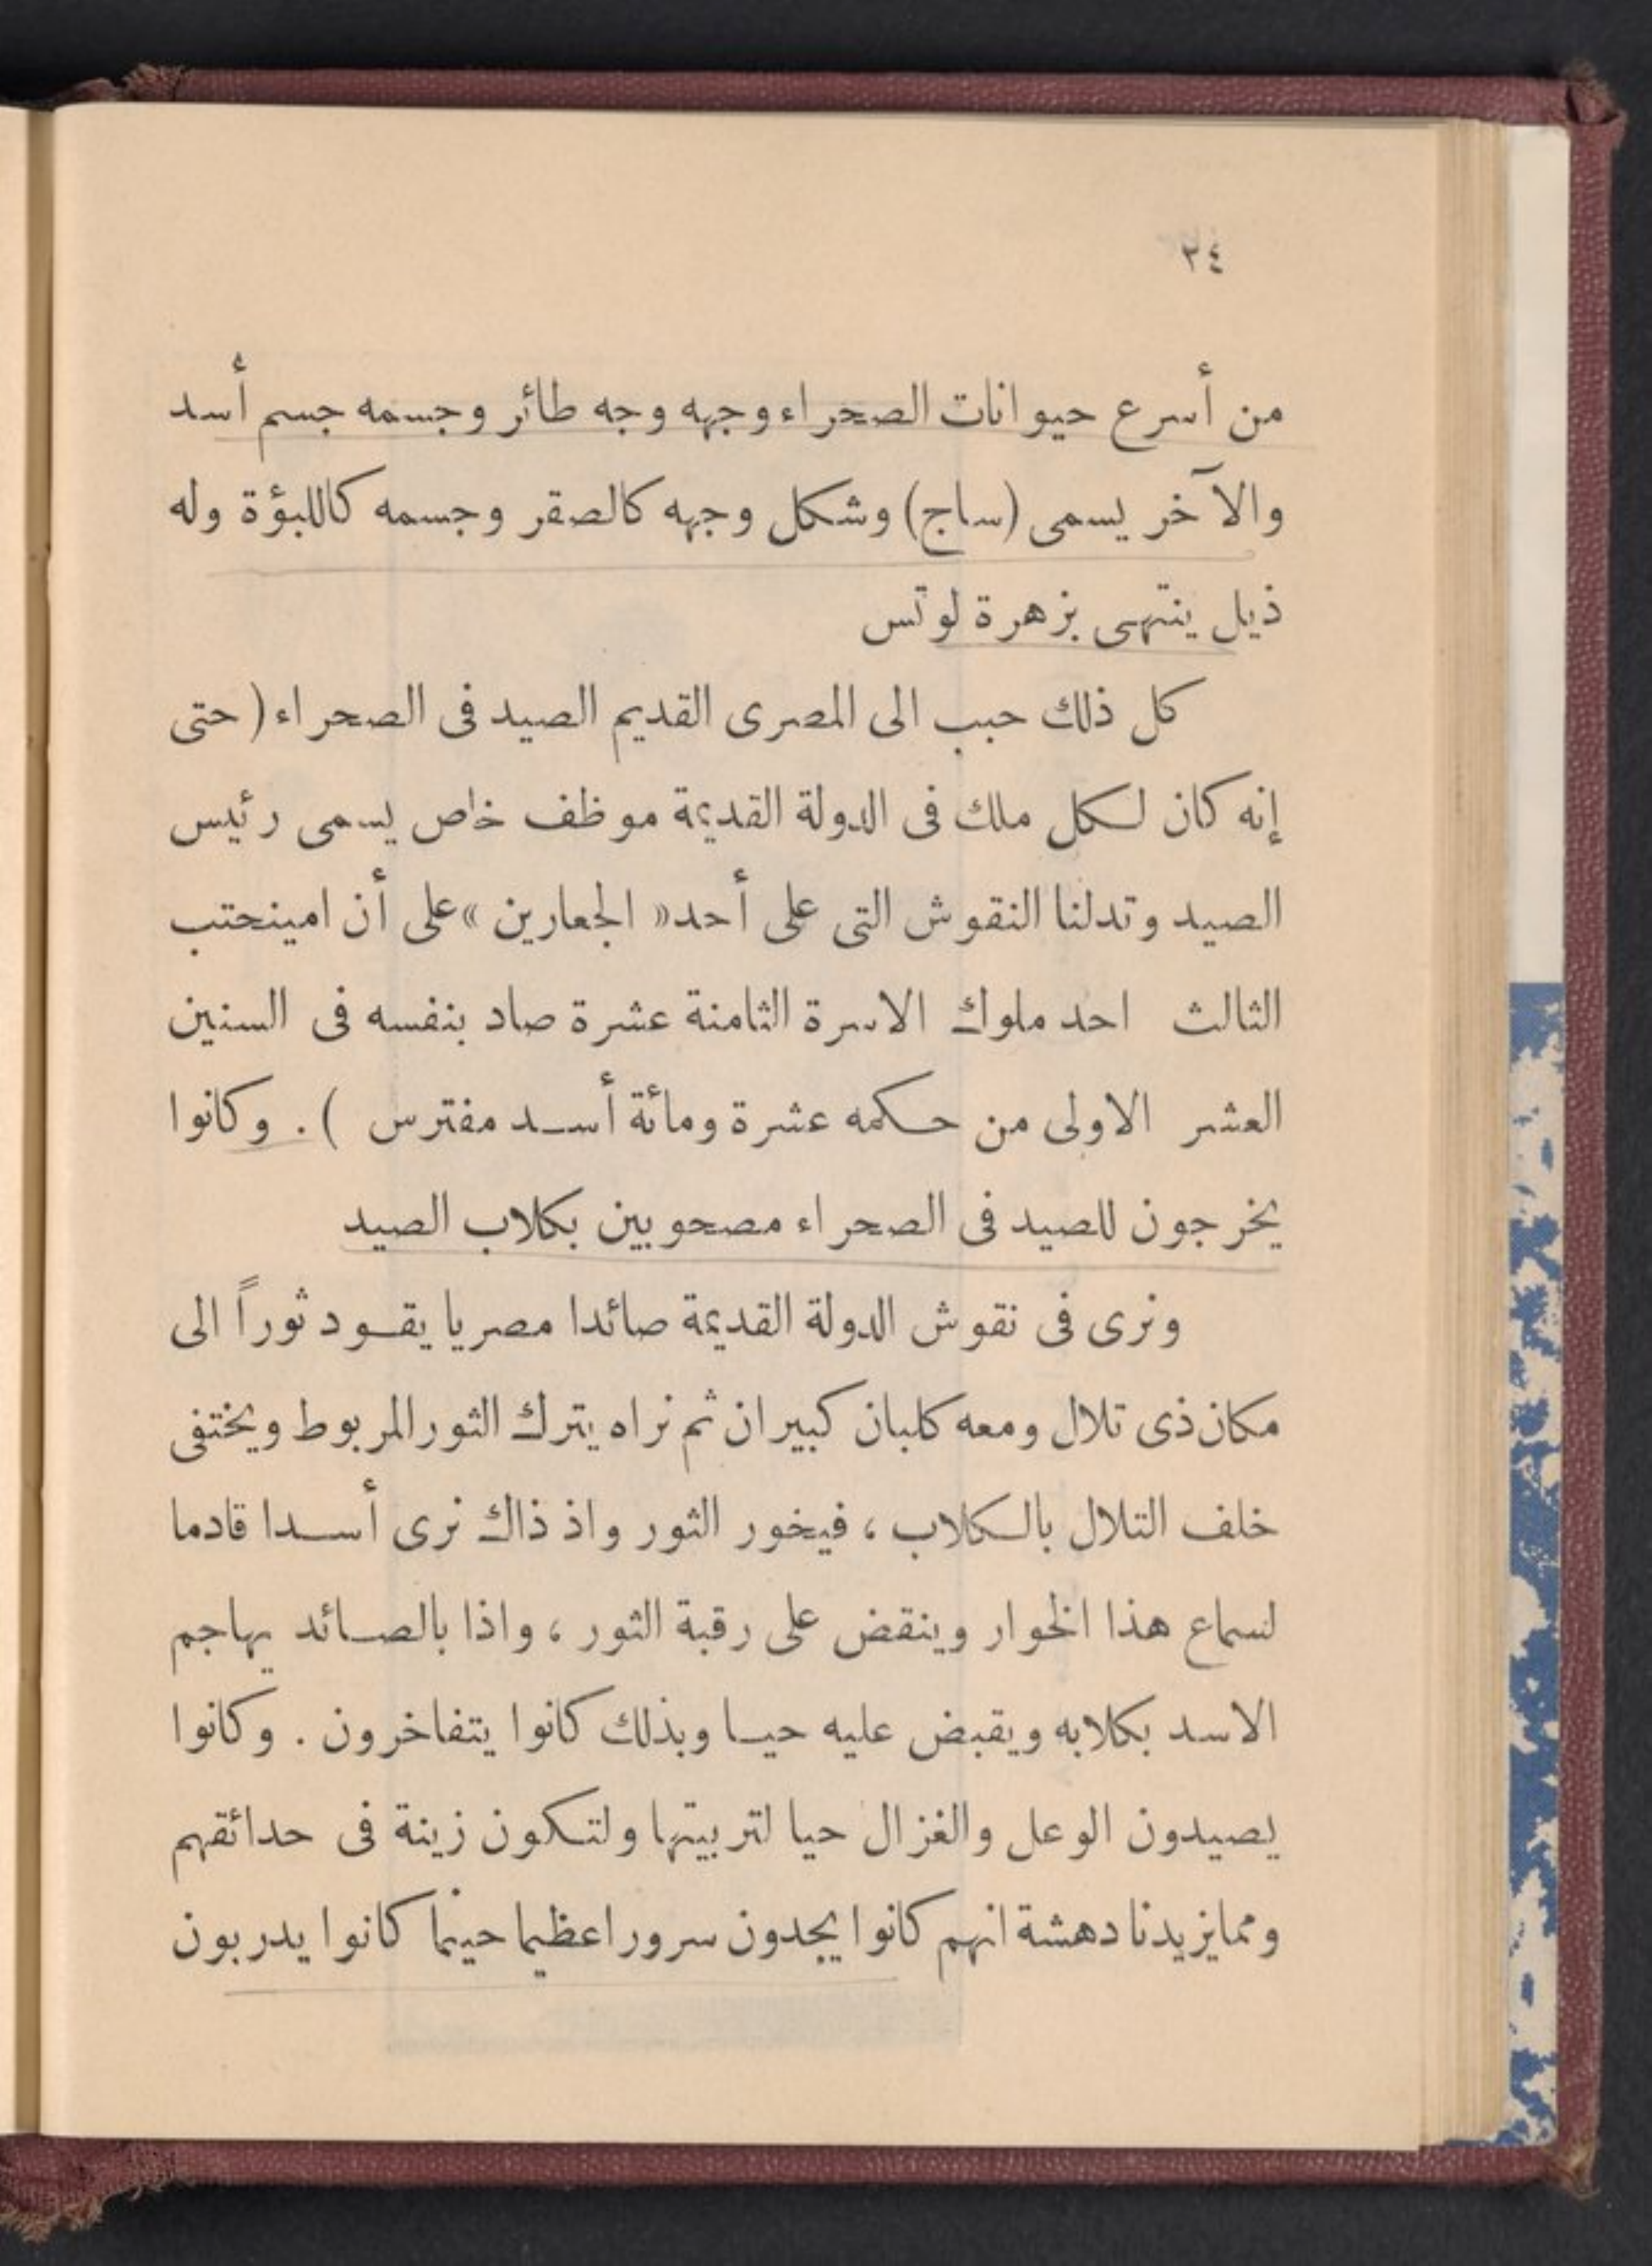 ٢٤
من أسرع حيوانات الصحراء وجهه وجه طائر وجسمه جسم أسد
والآخر يسمى (ساج) وشكل وجهه كالصقر وجسمه كاللبؤة وله
ذيل ينتهى بزهرة لوتس
كل ذلك حبب الى المصرى القديم الصيد فى الصحراء ( حتى
إنه كان لكل ملك فى الدولة القديمة موظف خاص يسمى رئيس
الصيد وتدلنا النقوش التى على أحد « الجعارين » على أن امينحتب
الثالث احد ملوك الاسرة الثامنة عشرة صاد بنفسه فى السنين
العشر الاولى من حكمه عشرة ومائة أسد مفترس ) . وكانوا
يخرجون للصيد فى الصحراء مصحوبين بكلاب الصيد
ونرى فى نقوش الدولة القديمة صائدا مصريا يقود ثوراً الى
مكان ذى تلال ومعه كلبان كبيران ثم نراه يترك الثور المربوط ويختفى
خلف التلال بالكلاب ، فيخور الثور واذ ذاك نرى أسدا قادما
لسماع هذا الخوار وينقض على رقبة الثور ، واذا بالصائد يهاجم
الاسد بكلابه ويقبض عليه حيا وبذلك كانوا يتفاخرون . وكانوا
يصيدون الوعل والغزال حيا لتربيتها ولتكون زينة فى حدائقهم
ومما يزيدنا دهشة انهم كانوا يجدون سرورا عظيما حينما كانوا يدربون